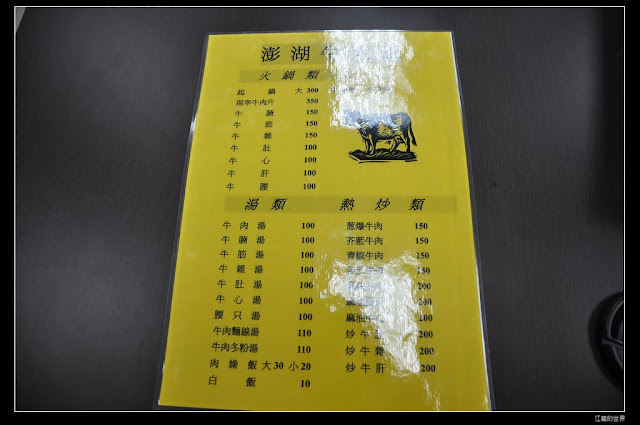 澎湖牛
火鍋類
起鍋 大300
現宰牛肉片 350
牛腩 150
牛筋 150
牛雜 150
牛肚 100
牛心 100
牛肝 100
牛腰 100
湯類
牛肉湯 100
牛腩湯 100
牛筋湯 100
牛雜湯 100
牛肚湯 100
牛心湯 100
腰只湯 100
牛肉麵線湯 110
牛肉冬粉湯 110
肉燥飯 大30 小20
白飯 10
熱炒類
蔥爆牛肉 150
芥藍牛肉 150
青椒牛肉 150
牛肉 150
200
麻油 200
麻油 200
炒牛 200
炒牛雜 200
炒牛肝 200
江龍的世界